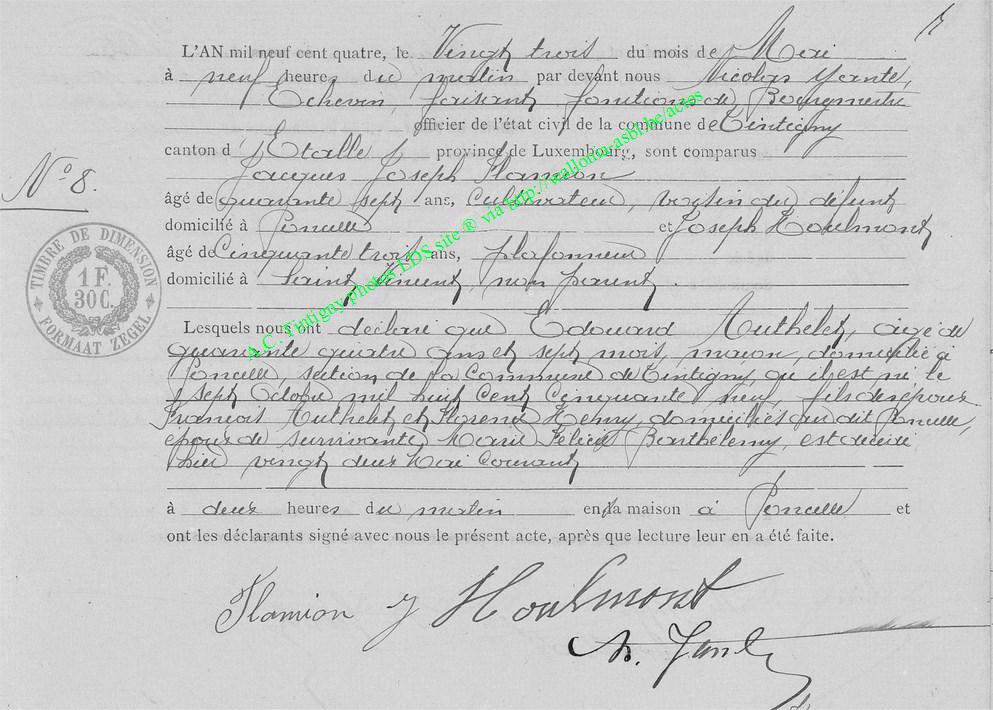 L'AN mil neuf cent quatre, le Vingt trois du mois de Mai
à neuf heures du matin par devant nous Nicolas Yante,
Echevin, faisant fonctions de Bourgmestre
officier de l'état civil de la commune de Tintigny
canton d'Etalle province de Luxembourg, sont comparus
Jacques Joseph Flamion
N° 8.
âgé de quarante sept ans, Cultivateur, voisin du défunt
domicilié à Poncelle et Joseph Houlmont
âgé de Cinquante trois ans, plafonneur
domicilié à Saint Vincent, non parent.
TIMBRE DE DIMENSION
1 F.
30 C.
FORMAAT ZEGEL
Lesquels nous ont déclaré que Edouard Authelet, âgé de
quarante quatre ans et sept mois, maçon, domicilié à
Poncelle, section de la Commune de Tintigny, qu'il est né le
sept Octobre mil huit cent cinquante neuf, fils des époux
François Authelet et Florence Henry, domiciliés au dit Poncelle,
époux de survivante Marie Félicie Barthelemy, est décédé
hier vingt deux Mai Courant
à deux heures du matin en la maison à Poncelle et
ont les déclarants signé avec nous le présent acte, après que lecture leur en a été faite.
Flamion J Houlmont
N. Yante
A.C. Tintigny photos EDS site ® via http://wallonia-asbl.be/actes